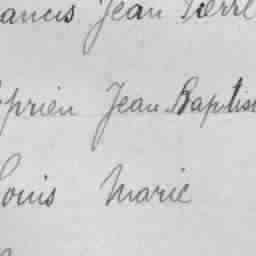 ancis Jean Pierre
prien Jean Baptis
ouis Marie